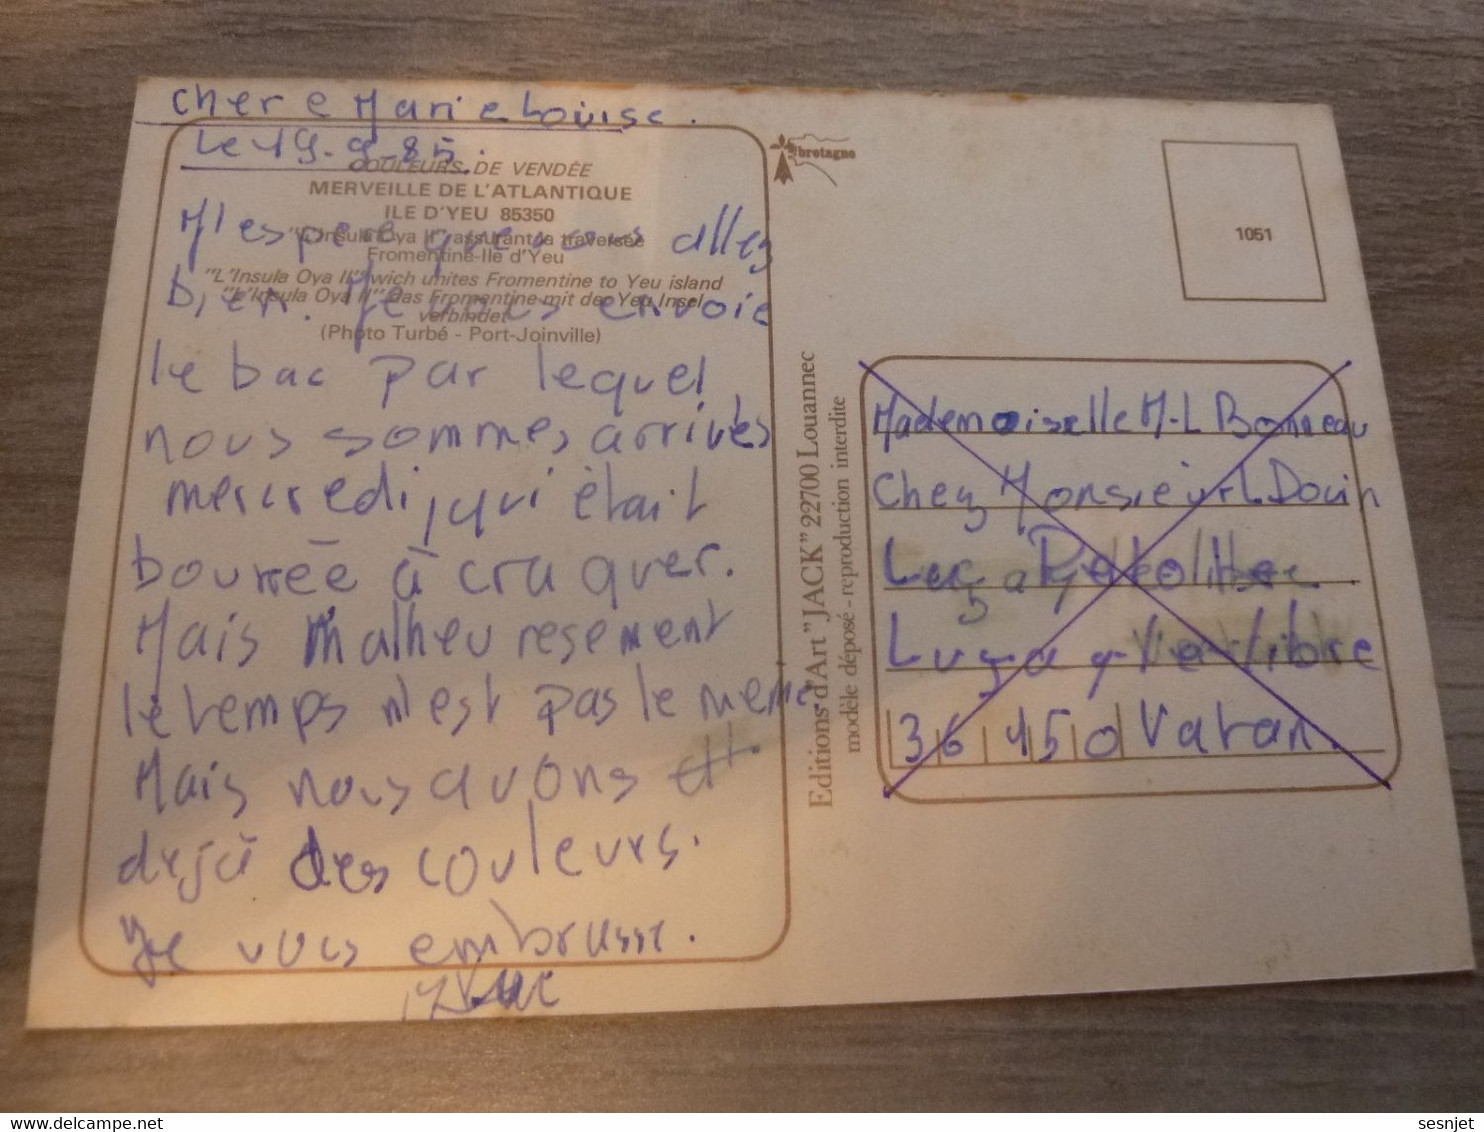 Chere Marie Louise.
Le 19-9-85.
COULEURS DE VENDÉE
MERVEILLE DE L'ATLANTIQUE
ILE D'YEU 85350
"L'Insula Oya II" assurant la traversée
Fromentine-Ile d'Yeu
"L'Insula Oya II" wich unites Fromentine to Yeu island
"L'Insula Oya II" das Fromentine mit der Yeu Insel
verbindet
(Photo Turbé - Port-Joinville)
J'espere que vous allez
bien. Je vous envoie
le bac par lequel
nous sommes arrivés
mercredi, qui était
bourrée à craquer.
Mais malheuresement
le temps n'est pas le meme
Mais nous avons
dejà des couleurs.
Je vous embrasse.
bretagne
1051
Editions d'Art "JACK" 22700 Louannec
modèle déposé - reproduction interdite
Mademoiselle M-L Bonneau
Chez Monsieur
Luçay le libre
36150 Vatan.
sesnjet